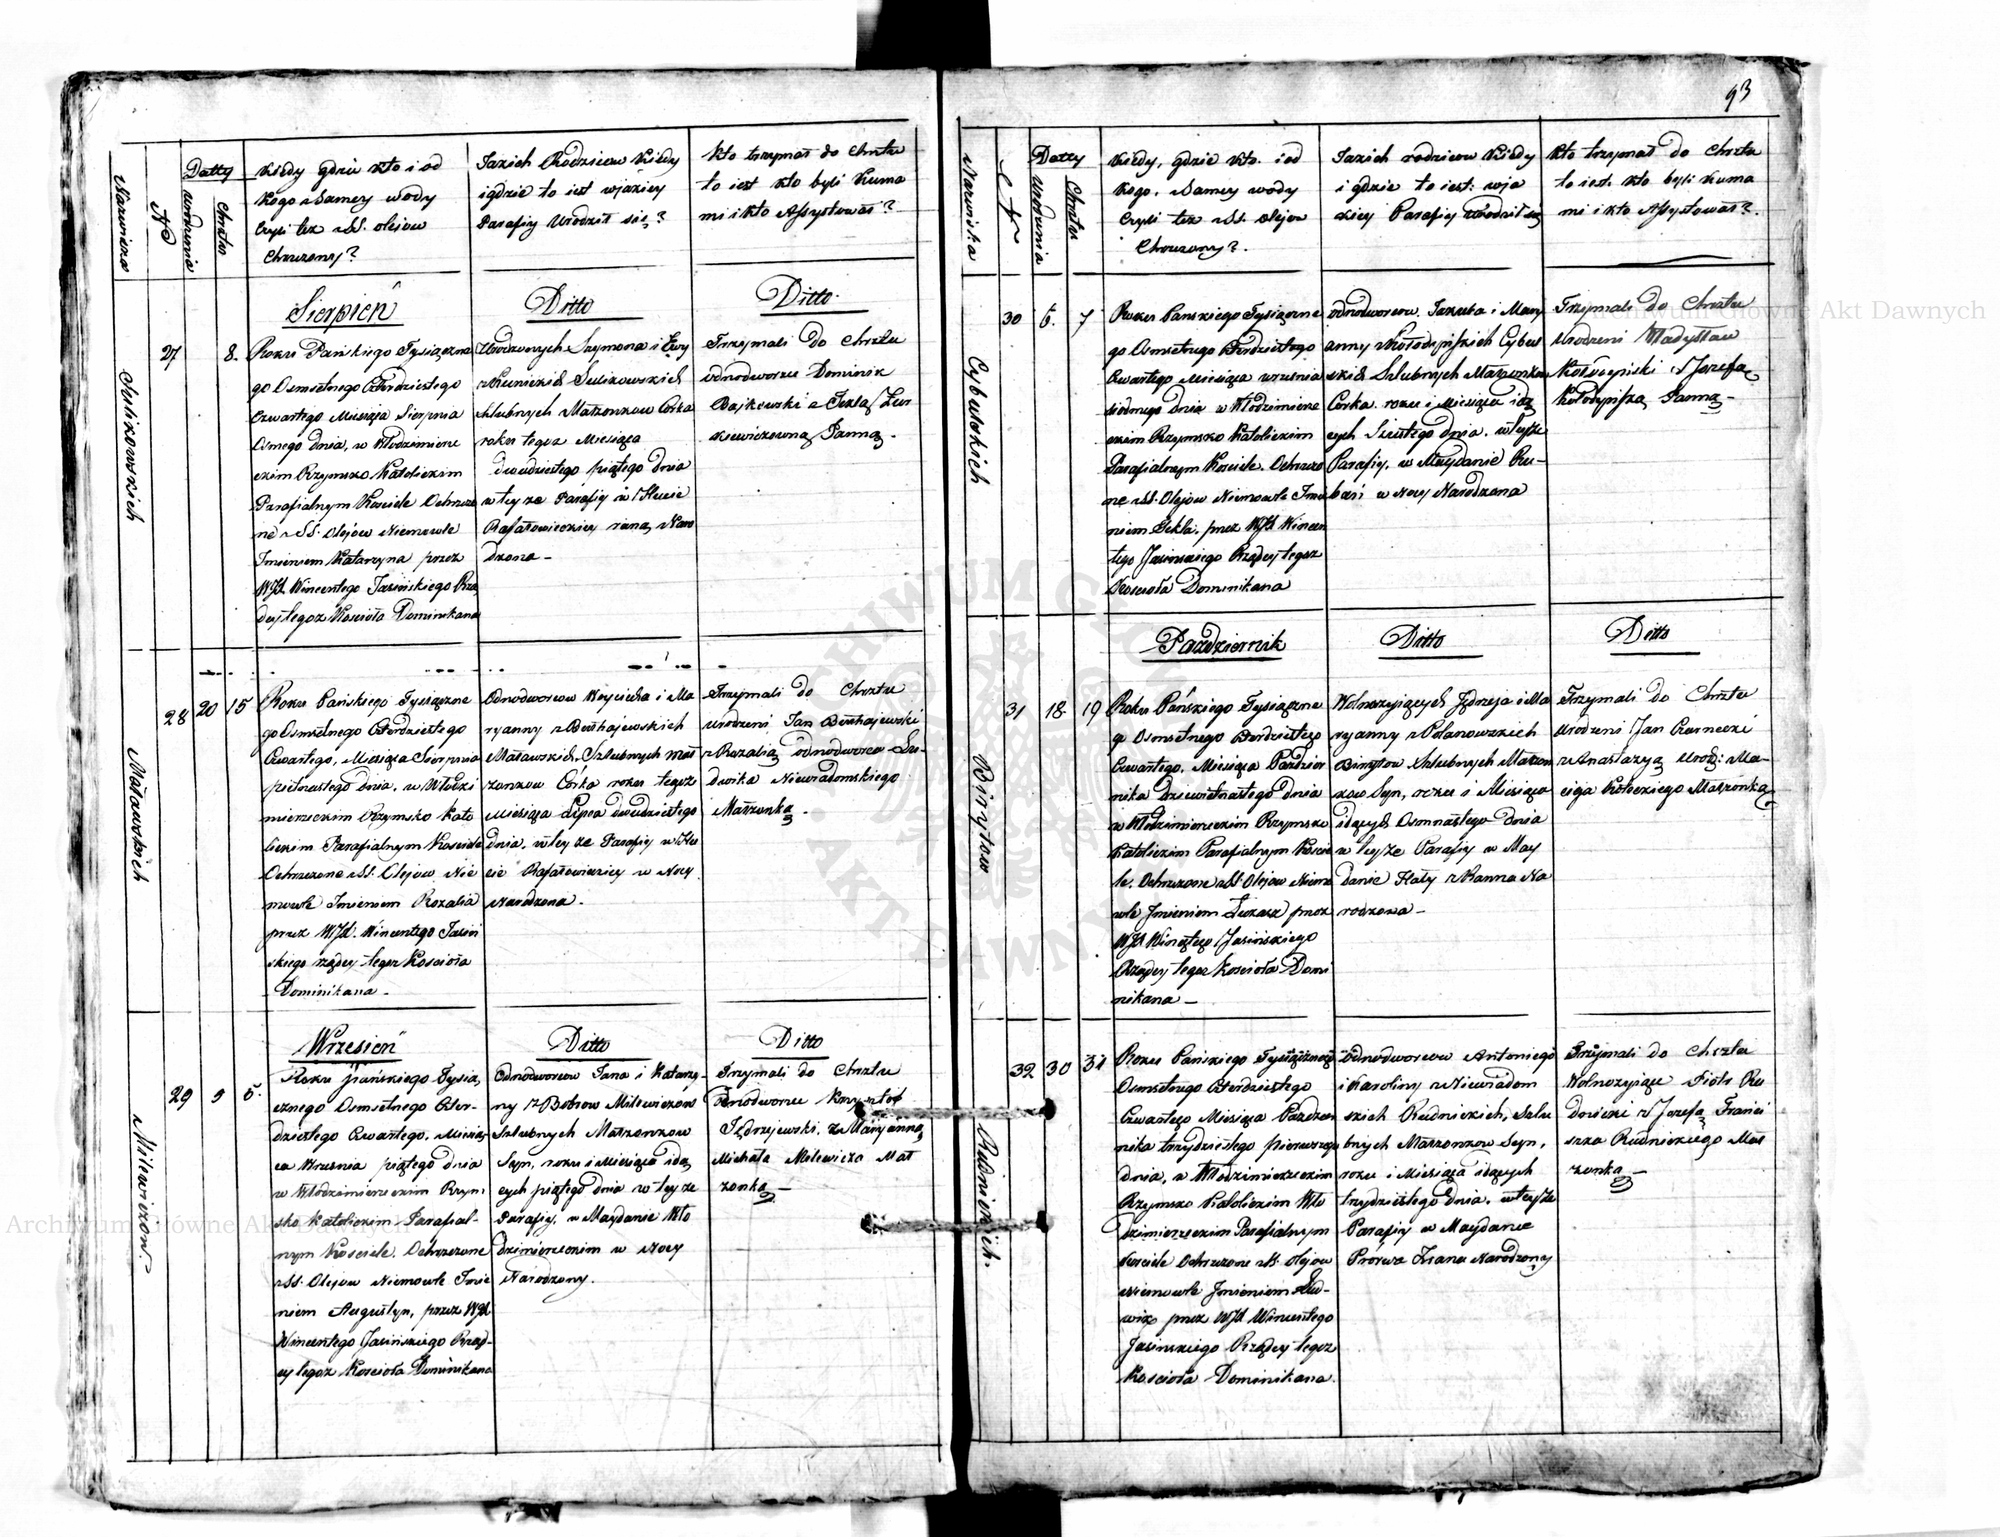 93
Nazwiska
No
Datty
urodzenia
Chrztu
Kiedy gdzie kto i od
kogo z Samey wody
czyli też z SS. olejów
Chrzczony?
Jakich Rodziców Kiedy
i gdzie to iest w jakiey
Parafiy Urodził się?
Kto trzymał do Chrztu
to iest kto byli Kuma
mi i kto Assystował?
Sierpień
Ditto
Ditto
Sulikowskich
27
8.
Roku Pańskiego Tysiączne
go Osmsetnego Czterdziestego
Czwartego Miesiąca Sierpnia
Osmego dnia, w Włodzimierz
eckim Rzymsko Katolickim
Parafialnym Kościele Ochrzczo
ne z SS. Olejów Niemowle
Imieniem Katarzyna przez
WJX Wincentego Jasińskiego Rzą
dcy tegoż Kościoła Dominikana
Urodzonych Szymona i Ewy
Sulikowskich
szlubnych Małżonków Córka
roku tegoż Miesiąca
dwudziestego piątego dnia
w tey że Parafiy w Hucie
Rafałowieckiey rano Naro
dzona -
Trzymali do Chrztu
odnodworzec Dominik
Bajkowski z Teklą
Panną -
Małowskich
28
20
15
Roku Pańskiego Tysiączne
go Osmsetnego Czterdziestego
Czwartego, Miesiąca Sierpnia
pietnastego dnia, w Włodzi
mierzeckim Rzymsko Kato
lickim Parafialnym Kościele
Ochrzczone z SS. Olejów Nie
mowle Imieniem Rozalia
przez WJX. Wincentego Jasiń
skiego rządcy tegoż Kościoła
Dominikana -
Odnodworców Woyciecha i Ma
ryanny z Bukhajewskich
Małowskich, Szlubnych mał
żonków Córka roku tegoż
Miesiąca Lipca dwudziestego
dnia, w tey że Parafiy w Hu
cie Rafałowieckiey w Nocy
Narodzona -
Trzymali do Chrztu
urodzeni Jan Bukhajewski
z Rozalią odnodworca Lu-
dwika Niewiadomskiego
Małżonką -
Wrzesień
Ditto
Ditto
Milewiczów.
29
5
5.
Roku Pańskiego Tysią
cznego Osmsetnego Czter-
dziestego Czwartego, Miesią
ca Wrzesnia piątego dnia
w Włodzimierzeckim Rzym
sko Katolickim Parafial-
nym Kościele, Ochrzczone
z SS. Olejów Niemowle Imie
niem Augustyn, przez WJX
Wincentego Jasińskiego Rząd-
cy tegoż Kościoła Dominikana
Odnodworców Jana i Katarzy-
ny z Bobrow Milewiczów
Szlubnych Małżonków
Syn, roku i Miesiąca idą
cych piątego dnia w tey że
Parafiy, w Maydanie Wło
dzimierzeckim w Nocy
Narodzony.
Trzymali do Chrztu
Odnodworzec
Jędrzejewski, z Maryanną
Michała Milewicza Mał
żonką -
Nazwiska
N
Datty
Urodzenia
Chrztu
Kiedy, gdzie kto. i od
kogo, z Samey wody
czyli też z SS. olejów
Chrzczony?.
Jakich rodziców Kiedy
i gdzie to iest: w ja
kiey Parafiy urodził się
Kto trzymał do Chrztu
to iest: kto byli kuma
mi i kto Assystował?.
Cybulskich
30
6.
7
Roku Pańskiego Tysiączne
go Osmsetnego Czterdziestego
Czwartego Miesiąca wrzesnia
siodmego dnia w Włodzimierz
eckim Rzymsko Katolickim
Parafialnym Kościele, Ochrzczo
ne z SS. Olejów Niemowle Imie
niem Tekla, przez WJX Wincen
tego Jasińskiego Rządcy tegoż
Kościoła Dominikana
odnodworców, Jakuba i Mary
anny z Kołodyńskich Cybul
skich Szlubnych Małżonków
Córka, roku i Miesiąca idą
cych Szóstego dnia, w teyże
Parafiy, w Maydanie
w Nocy Narodzona
Trzymali do Chrztu
Urodzeni Władysław
z Jozefą
Kołodyńską Panną -
Październik
Ditto
Ditto
Binrytow
31
18
19
Roku Pańskiego Tysiączne
go Osmsetnego Czterdziestego
Czwartego, Miesiąca Paździer
nika dziewietnastego dnia
w Włodzimierzeckim Rzymsko
Katolickim Parafialnym Kości
le, Ochrzczone z SS. Olejów Niemo
wle Imieniem Łukasz przez
WJX Wincętego Jasińskiego
Rządcy tegoż Kościoła Domi
nikana -
Wolnożyjących Jędrzeja i Ma
ryanny z Polanowskich
Binrytow Szlubnych Małżon
ków Syn, roku i Miesiąca
idących Osmnastego dnia
w teyże Parafiy w May
danie Hały z Ranna Na
rodzona -
Trzymali do Chrztu
Urodzeni Jan Czernecki
z Anastazyą Urodz: Ma-
cieja Kołeckiego Małżonką
Rudnickich.
32
30
31
Roku Pańskiego Tysiącznego
Osmsetnego Czterdziestego
Czwartego Miesiąca Paździer
nika trzydziestego pierwszego
dnia, w Włodzimierzeckim
Rzymsko Katolickim Wło
dzimierzeckim Parafialnym
Kościele Ochrzczone z SS. olejów
Niemowle Imieniem Lud-
wik przez WJX Wincentego
Jasińskiego Rządcy tegoż
Kościoła Dominikana.
Odnodworców Antoniego
i Karoliny z Niewiadom
skich Rudnickich, Szlu
bnych Małżonków Syn,
roku i Miesiąca idących
trzydziestego Dnia, w teyże
Parafiy w Maydanie
Prórwa Zrana Narodzony
Trzymali do Chrztu
Wolnożyjące Piotr Ru
dnicki z Jozefą Franci
szka Rudnickiego Mał
żonką -
Archiwum Główne Akt Dawnych
Archiwum Główne Akt Dawnych
ARCHIWUM GŁÓWNE AKT DAWNYCH